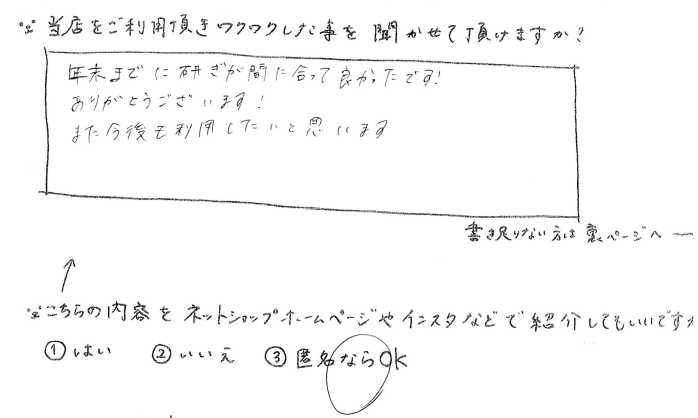 ※当店をご利用頂きワクワクした事を聞かせて頂けますか?
年末までに研ぎが間に合って良かったです!
ありがとうございます!
また今後も利用したいと思います
書き足りない方は裏ページへ
※こちらの内容をネットショップホームページやインスタなどで紹介してもいいですか
①はい ②いいえ ③匿名ならOK